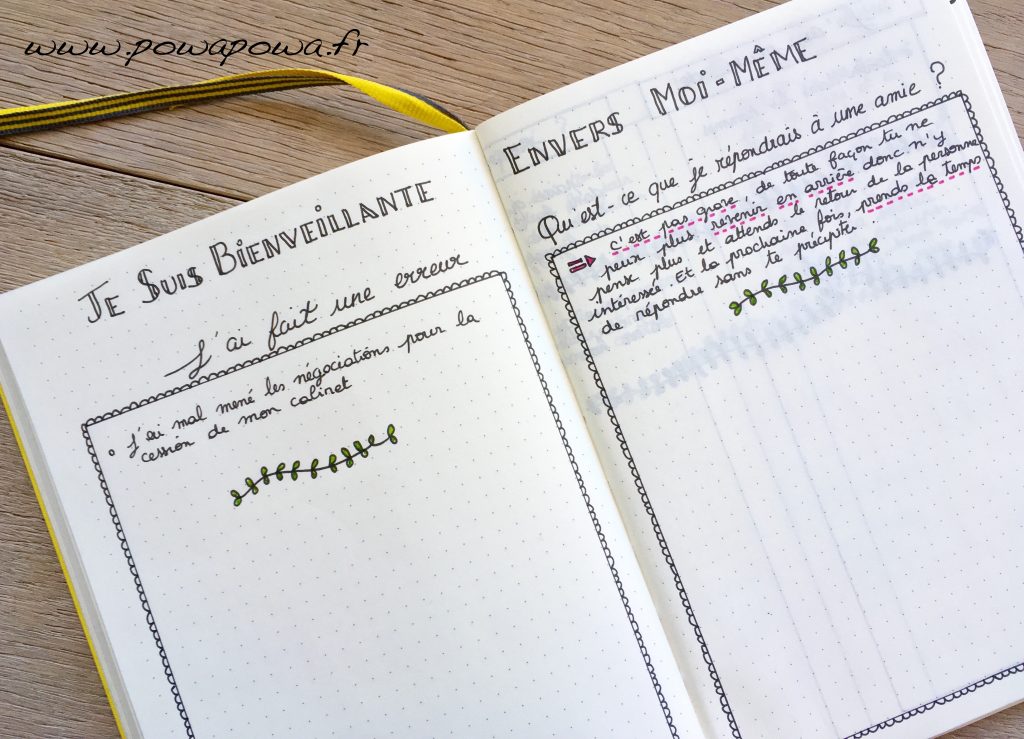 www.powapowa.fr
Je Suis Bienveillante
J'ai fait une erreur
J'ai mal mené les négociations pour la
cession de mon cabinet
Envers Moi-Même
Qu'est-ce que je répondrais à une amie ?
c'est pas grave, de toute façon tu ne
peux plus revenir en arrière donc n'y
pense plus et attends le retour de la personne
intéressée. Et la prochaine fois, prends le temps
de répondre sans te précipiter.